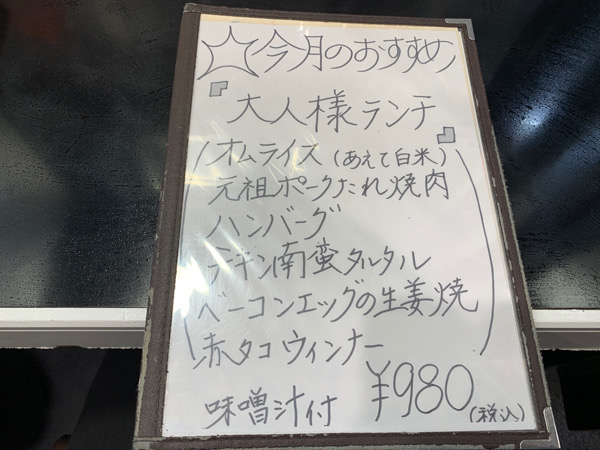 今月のおすすめ
『大人様ランチ』
(オムライス(あえて白米)
元祖ポークたれ焼肉
ハンバーグ
チキン南蛮タルタル
ベーコンエッグの生姜焼
赤タコウィンナー)
味噌汁付 ¥980(税込)